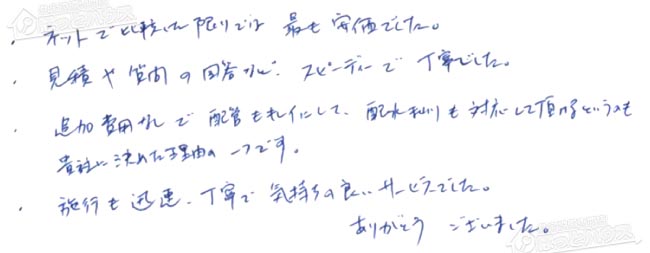 ・ ネットで比較した限りでは 最も安価でした。
・ 見積や質問の回答など、スピーディーで丁寧でした。
・ 追加費用なしで 配管もキレイにして、配水 も対応して頂けるというのも
貴社に決めた理由の一つです。
・ 施行も迅速、丁寧で 気持ちの良いサービスでした。
ありがとう ございました。